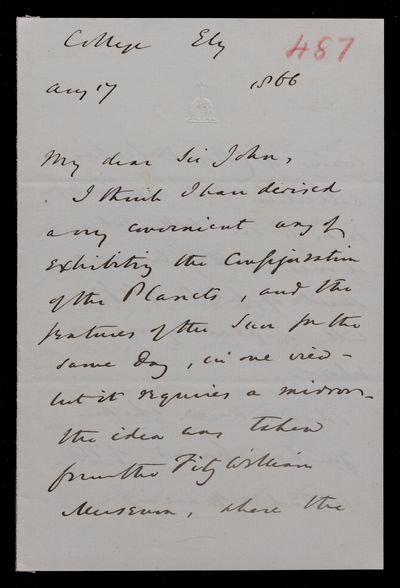 College Ely
487
Aug 17 1866
My dear Sir John,
I think I have devised
a very convenient way of
exhibiting the Configuration
of the Planets, and the
features of the Sun for the
same Day, in one view -
but it requires a mirror -
the idea was taken
from the Fitzwilliam
Museum, where the